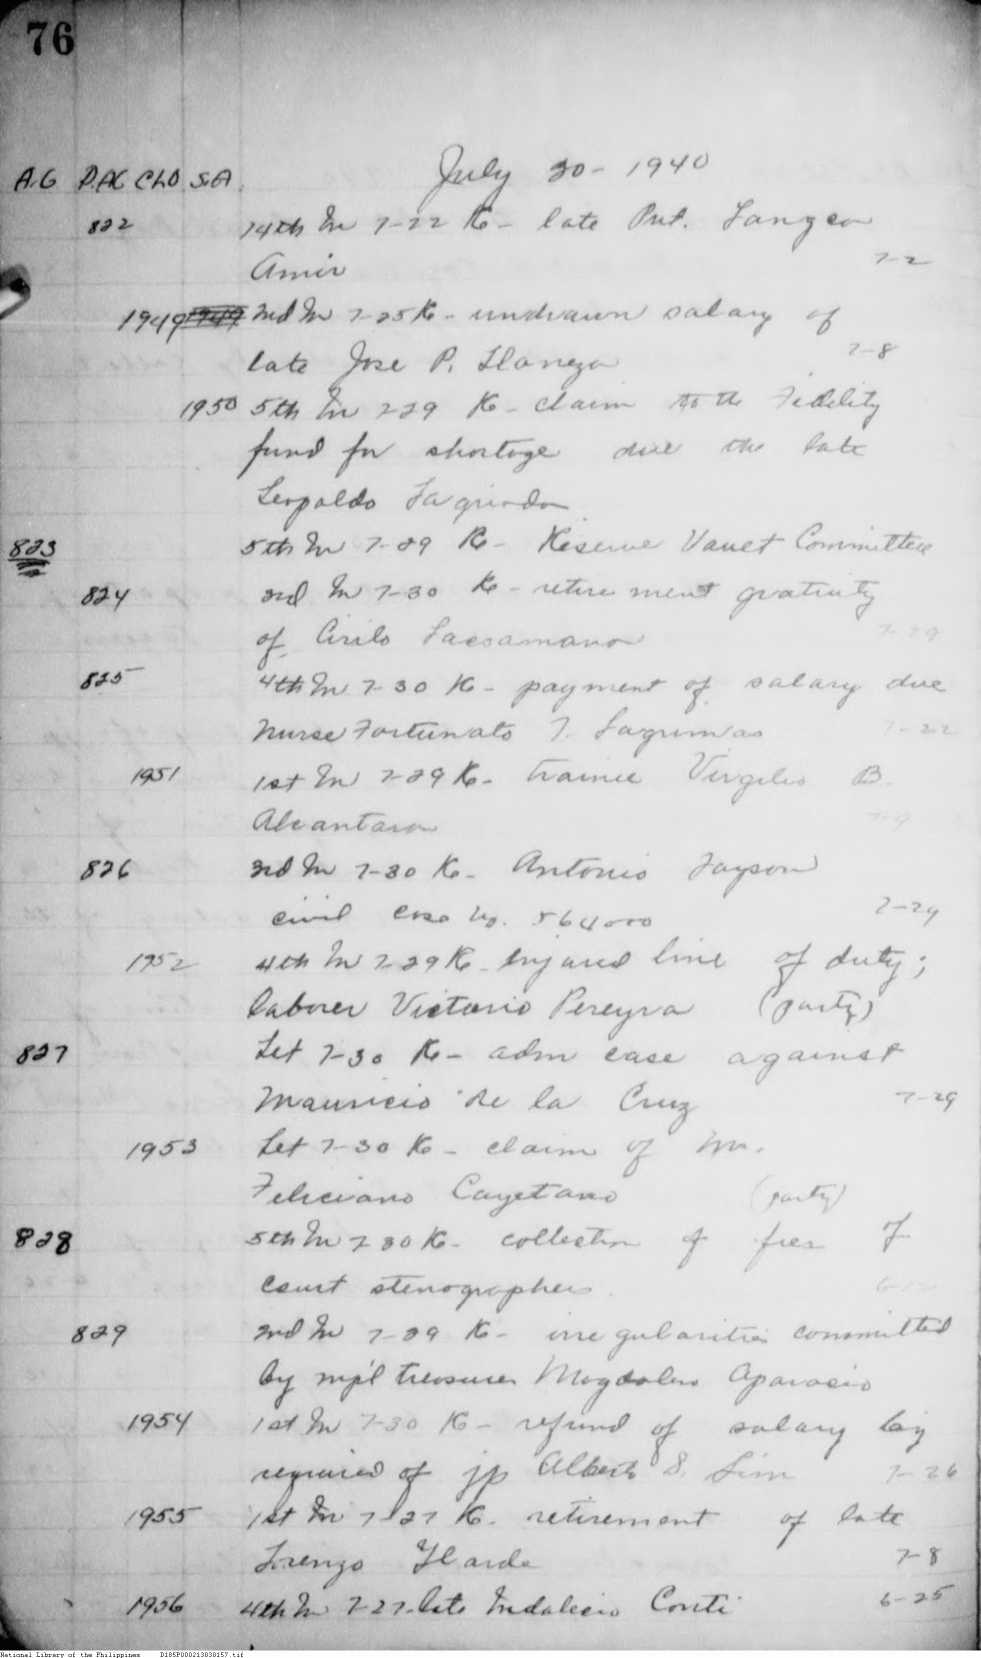 76
July 30- 1940
A.G D.AC CLD S.A.
822 14th In 7-22 K- late Pvt.
Amir 7-2
1949 1949 2nd In 7-25 K- undrawn salary of
late Jose P. Llaneza 7-8
1950 5th In 7-29 K- claim to the Fidelity
fund for shortage due the late
Leopoldo
823 5th In 7-29 K- Reserve Vault Committee
824 3rd In 7-30 K- retirement gratuity
of Cirilo Lacsamana 7-29
825 4th In 7-30 K- payment of salary due
Nurse Fortunato T. Lagrimas 7-22
1951 1st In 7-29 K- trainee Virgilio B.
Alcantara 7-9
826 3rd In 7-30 K- Antonio Jayson
civil case No. 7-29
1952 4th In 7-29 K- injured line of duty;
laborer Victorio Pereyra (party)
827 Let 7-30 K- adm case against
Mauricio de la Cruz 7-29
1953 Let 7-30 K- claim of Mr.
Feliciano Cayetano (party)
828 5th In 7-30 K- collection of fees of
court stenographers
829 2nd In 7-29 K- irregularities committed
by mpl treasurer Magdaleno Aparacio
1954 1st In 7-30 K- refund of salary by
required of jp Alberto S. Lim 7-26
1955 1st In 7-27 K- retirement of late
Lorenzo Ylarde 7-8
1956 4th In 7-27- late Indalecio Conti 6-25
National Library of the Philippines D185P000213838157.tif